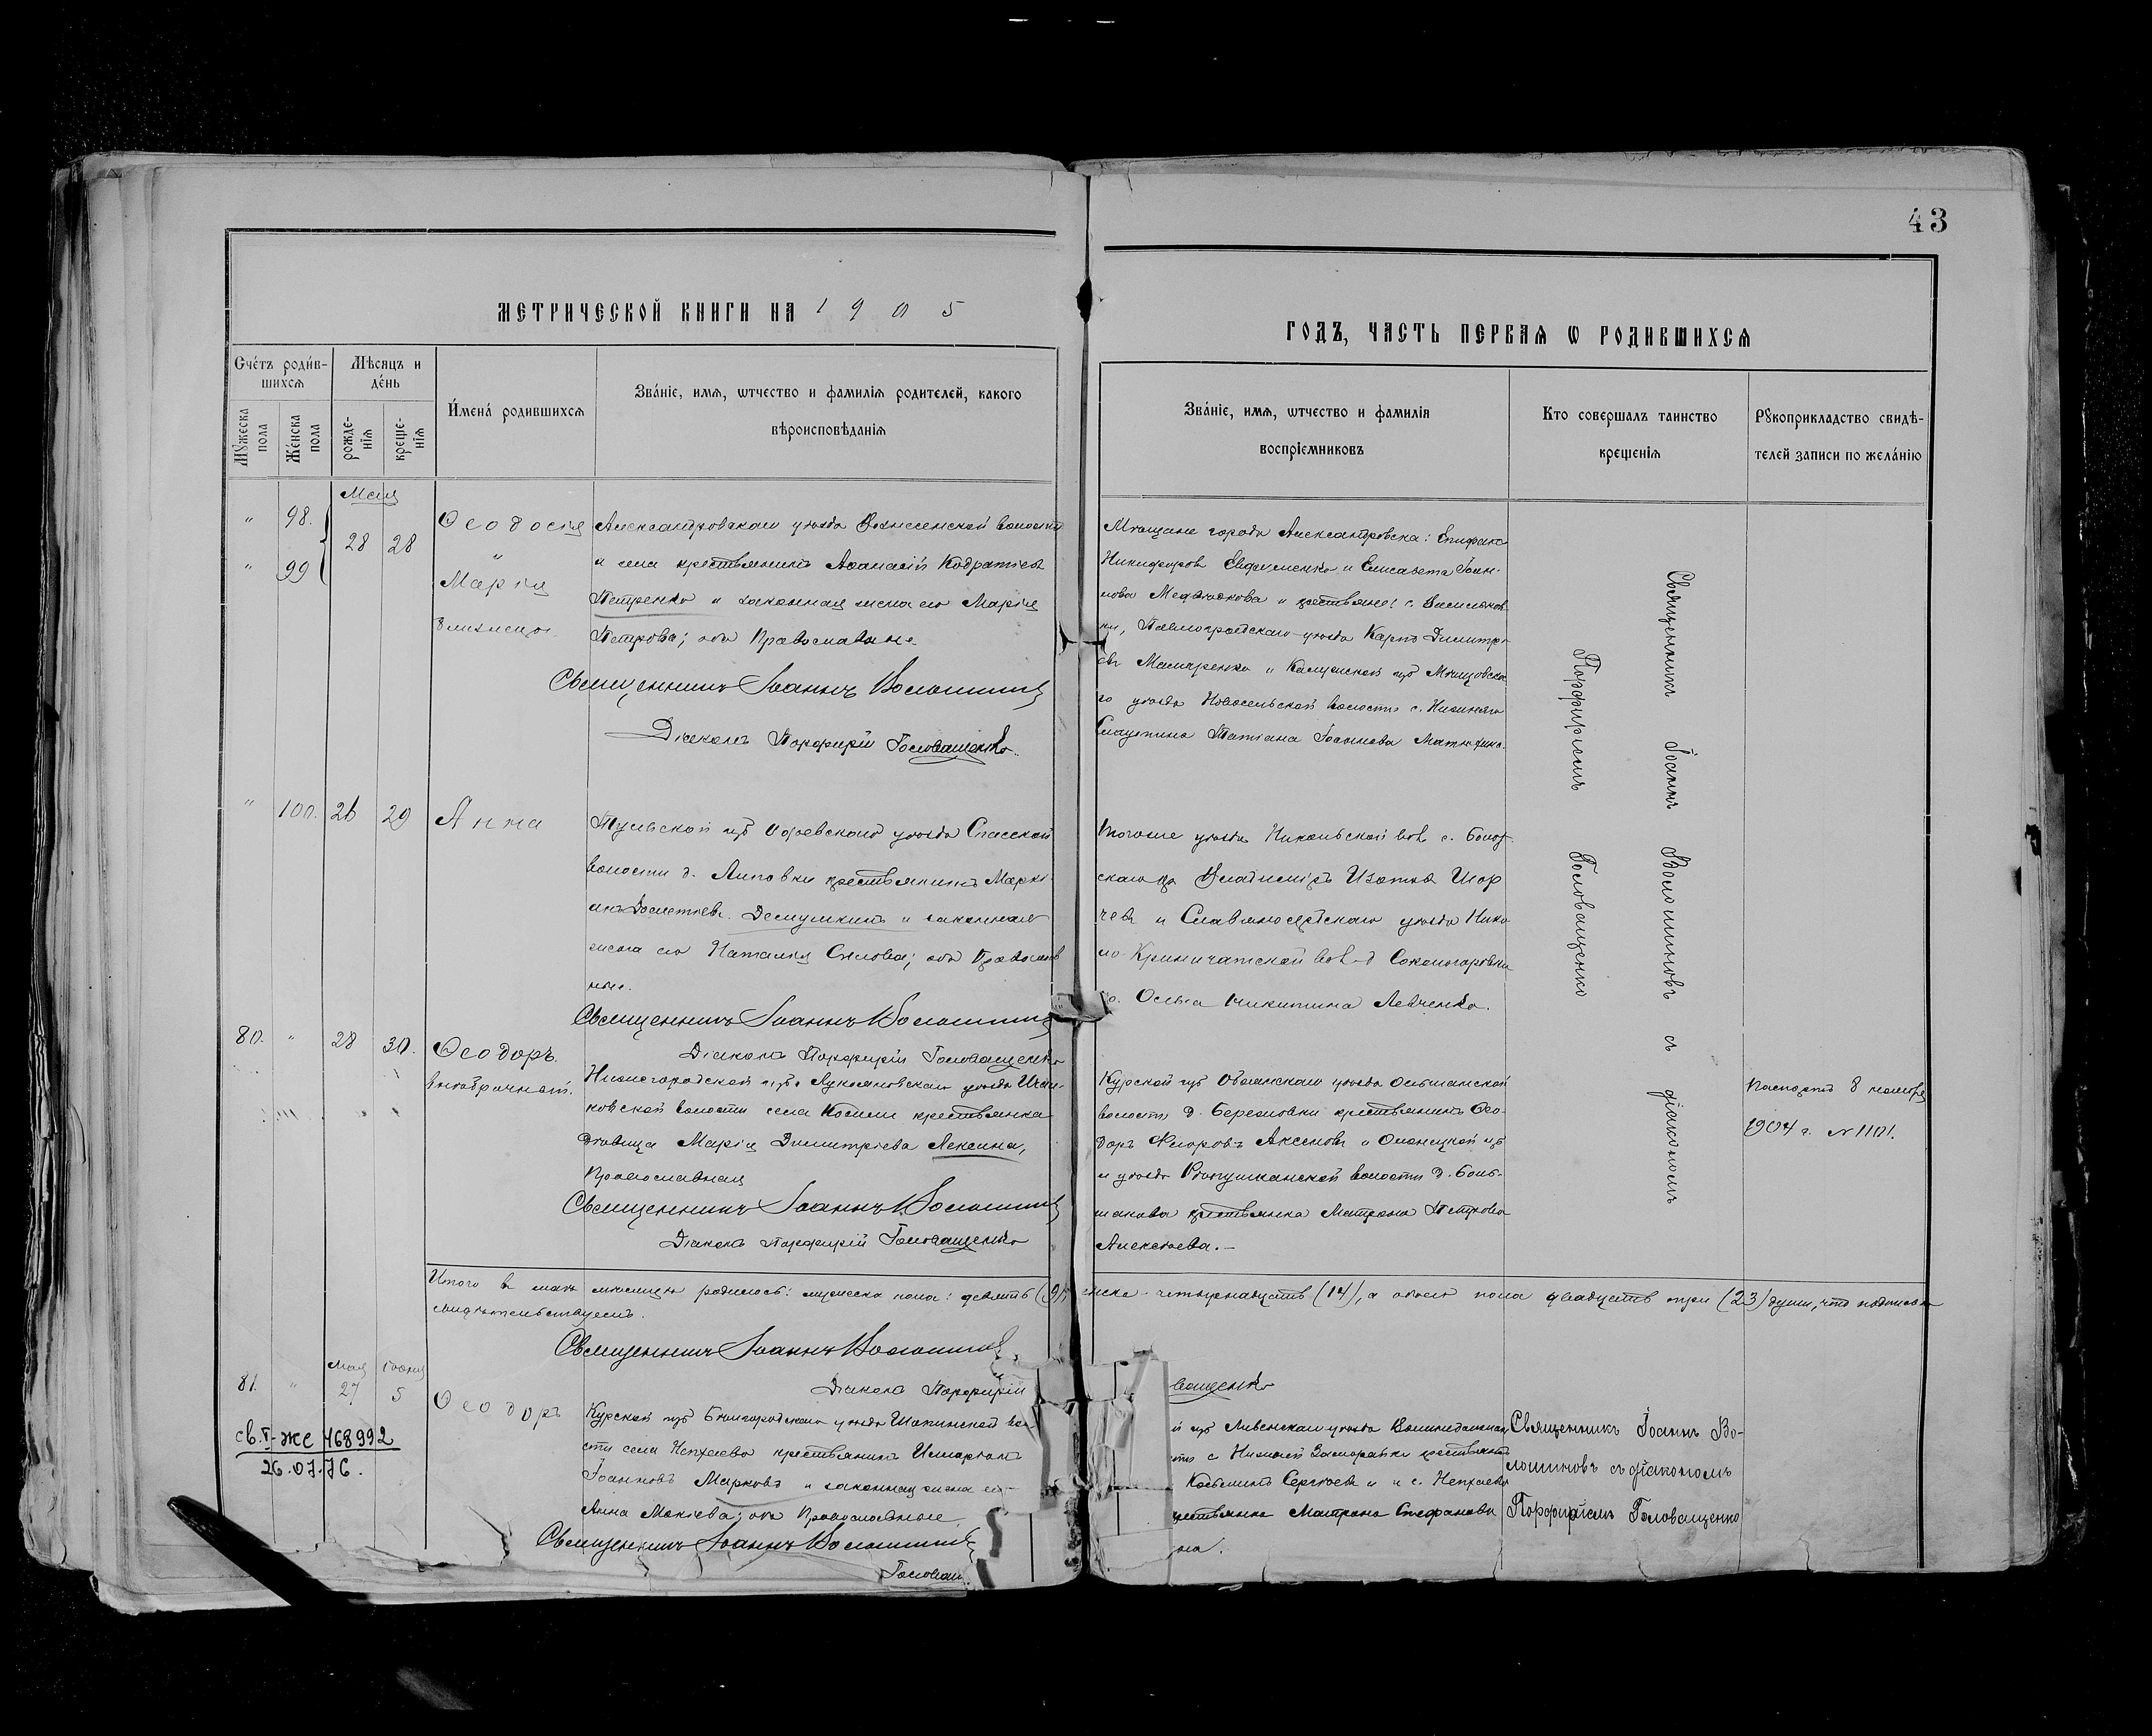 43
МЕТРИЧЕСКОЙ КНИГИ НА 1905
ГОДЪ, ЧАСТЬ ПЕРВАѦ Ѡ РОДИВШИХСѦ
Счéтъ роди́в-
шихсѧ
Мѣсѧцъ и
де́нь
Мꙋжеска
пола
Же́нска
пола
рожде-
нїѧ
креще-
нїѧ
И́мена́ родившихсѧ
Зва́нїе, имѧ, ѡтчество и фамилїѧ родителей, какого
вѣроисповѣданїѧ
Зва́нїе, имѧ, ѡтчество и фамилїѧ
воспрїемниковъ
Кто совершалъ таинство
крещенїѧ
Рꙋкоприкладство свидѣ-
телей записи по жела́нїю
Мая
" 98.
" 99
28 28
Ѳеодосія
"
Марія
близнецы.
Александровскаго уѣзда Вознесенской волости
и села крестьянинъ Аѳанасій Кодратіевъ
Петренко и законная жена его Марія
Петрова; оба Православные
Священникъ Іоаннъ Волошинъ
Діаконъ Порфирій Головащенко
Мѣщане города Александровска: Епифанъ
Никифоровъ Евфименко и Елисавета Іоан-
нова Медвѣдкова и крестьяне: с. Васильков-
ки, Павлоградскаго уѣзда Карпъ Димитрі-
евъ Макаренко и Калужской губ Мещовска
го уѣзда Новосельской волости с. Нижняго
Татіана Іоаннова
Священникъ Іоаннъ Волошиновъ съ діакономъ
Порфиріемъ Головащенко
" 100. 26 29 Анна
Тульской губ уѣзда Спасской
волости д. Липовки крестьянинъ Маркі-
анъ Демушкинъ и законная
жена его Наталія Силова; оба Православ
ные.
Священникъ Іоаннъ Волошинъ
Діаконъ Порфирій Головащенко
тогоже уѣзда Никольской вол. с.
скаго кр Владиміръ
и Славяносербскаго уѣзда Нико
ло-Криничатской вол. д Сокологоровки
Ольга Никитина Левченко.
80. " 28 30. Ѳеодоръ
внѣбрачный.
Нижегородской губ. Лукояновскаго уѣзда
ковской волости села крестьянка
дѣвица Марія Димитріева Лексина,
Православная
Священникъ Іоаннъ Волошинъ
Діаконъ Порфирій Головащенко
Курской губ Обоянскаго уѣзда Ольшанской
волости д. Березовки крестьянинъ Ѳео-
доръ Аксеновъ и Олонецкой губ
и уѣзда волости д. Боль-
шакова крестьянка Матрона Петрова
Алексѣева.
Паспортъ 8 ноября
1904 г. № 1101.
Итого въ маѣ мѣсяцѣ родилось: мужеска пола: девять (9), женска четырнадцать (14), а обоего пола двадцать три (23) души, что подписомъ
свидѣтельствуемъ.
Священникъ Іоаннъ Волошинъ
Діаконъ Порфирій
ващенко
81. " Мая 27 Іюня 5 Ѳеодоръ
Курской губ Бѣлгородскаго уѣзда Шопинской воло
сти села Непхаево крестьянинъ
Іоанновъ Марковъ и законная жена его
Анна Мокіева; оба Православные
Священникъ Іоаннъ Волошинъ
Головащ
й губ Ливенскаго уѣзда
сти с крестьянинъ
Козьминъ Сергѣевъ и с. Непхаево
крестьянка Матрона Стефанова
на.
Священникъ Іоаннъ Во-
лошиновъ съ діакономъ
Порфиріемъ Головащенко
св. I-жс 468992
26.07.76.